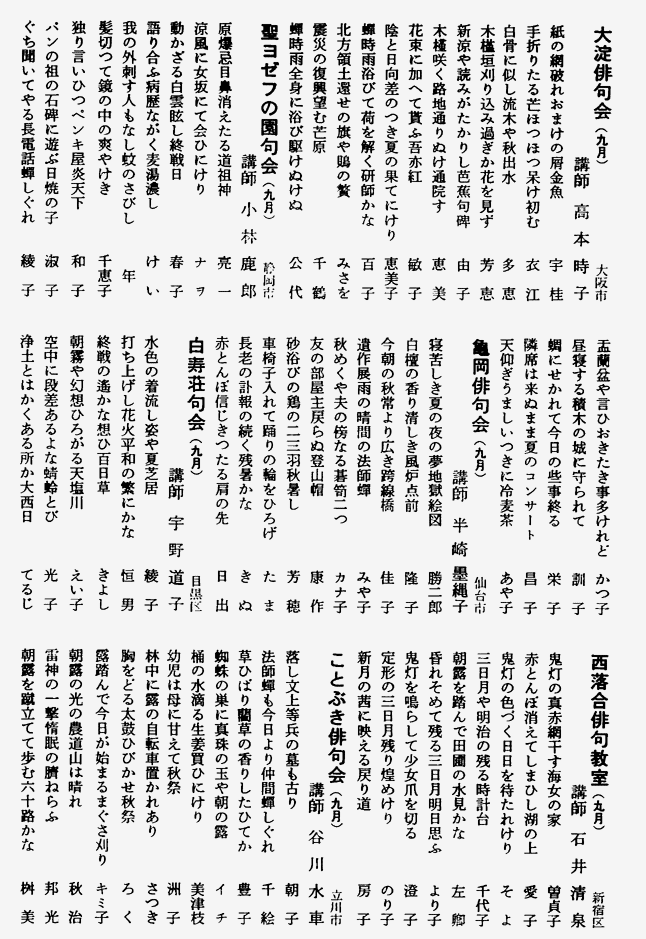 大淀俳句会（九月）
大阪市
講師 高本時子
紙の網破れおまけの屑金魚 宇桂
手折りたる芒ほつほつ呆け初む 衣江
白骨に似し流木や秋出水 多恵
木槿垣刈り込み過ぎか花を見ず 芳恵
新涼や読みがたかりし芭蕉句碑 由子
木槿咲く路地通りぬけ通院す 恵美
花束に加へて貰ふ吾亦紅 敏子
陰と日向差のつき夏の果てにけり 恵美子
蟬時雨浴びて荷を解く研師かな 百子
北方領土還せの旗や鵙の贄 みさを
震災の復興望む芒原 千鶴
蟬時雨全身に浴び駆けぬけぬ 公代
聖ヨゼフの園句会（九月）
静岡市
講師 小林鹿郎
原爆忌目鼻消えたる道祖神 亮一
涼風に女坂にて会ひにけり ナヲ
動かざる白雲眩し終戦日 春子
語り合ふ病歴ながく麦湯濃し けい
我の外刺す人もなし蚊のさびし 年
髪切つて鏡の中の爽やけき 千恵子
独り言いひつペンキ屋炎天下 和子
パンの祖の石碑に遊ぶ日焼の子 淑子
ぐち聞いてやる長電話蟬しぐれ 綾子
盂蘭盆や言ひおきたき事多けれど かつ子
昼寝する積木の城に守られて 訓子
蜩にせかれて今日の些事終る 栄子
隣席は来ぬまま夏のコンサート 昌子
天仰ぎうましいつきに冷麦茶 あや子
亀岡俳句会（九月）
仙台市
講師 半崎墨縄子
寝苦しき夏の夜の夢地獄絵図 勝二郎
白檀の香り清しき風炉点前 隆子
今朝の秋常より広き跨線橋 佳子
遺作展雨の晴間の法師蟬 みや子
秋めくや夫の傍なる碁笥二つ カナ子
友の部屋主戻らぬ登山帽 康作
砂浴びの鶏の二三羽秋暑し 芳穂
車椅子入れて踊りの輪をひろげ たま
長老の訃報の続く残暑かな きぬ
赤とんぼ信じきつたる肩の先 日出
白寿荘句会（九月）
目黒区
講師 宇野道子
水色の着流し姿や夏芝居 綾子
打ち上げし花火平和の繁にかな 恒男
終戦の遙かな想ひ百日草 きよし
朝霧や幻想ひろがる天塩川 えい子
空中に段差あるよな蜻蛉とび 光子
浄土とはかくある所か大西日 てるじ
西落合俳句教室（九月）
新宿区
講師 石井清泉
鬼灯の真赤網干す海女の家 曽貞子
赤とんぼ消えてしまひし湖の上 愛子
鬼灯の色づく日日を待たれけり そよ
三日月や明治の残る時計台 千代子
朝露を踏んで田圃の水見かな 左卿
昏れそめて残る三日月明日思ふ より子
鬼灯を鳴らして少女爪を切る 澄子
定形の三日月残り煌めけり のり子
新月の茜に映える戻り道 房子
ことぶき俳句会（九月）
立川市
講師 谷川水車
落し文上等兵の墓も古り 朝子
法師蟬も今日より仲間蟬しぐれ 千絵
草ひばり蘭草の香りしたひてか 豊子
蜘蛛の巣に真珠の玉や朝の露 イチ
桶の水滴る生姜買ひにけり 美津枝
幼児は母に甘えて秋祭 洲子
林中に露の自転車置かれあり さつき
胸をどる太鼓ひびかせ秋祭 ろく
露踏んで今日が始まるまぐさ刈り キミ子
朝露の光の農道山は晴れ 秋治
雷神の一撃惰眠の臍ねらふ 邦光
朝露を蹴立てて歩む六十路かな 桝美